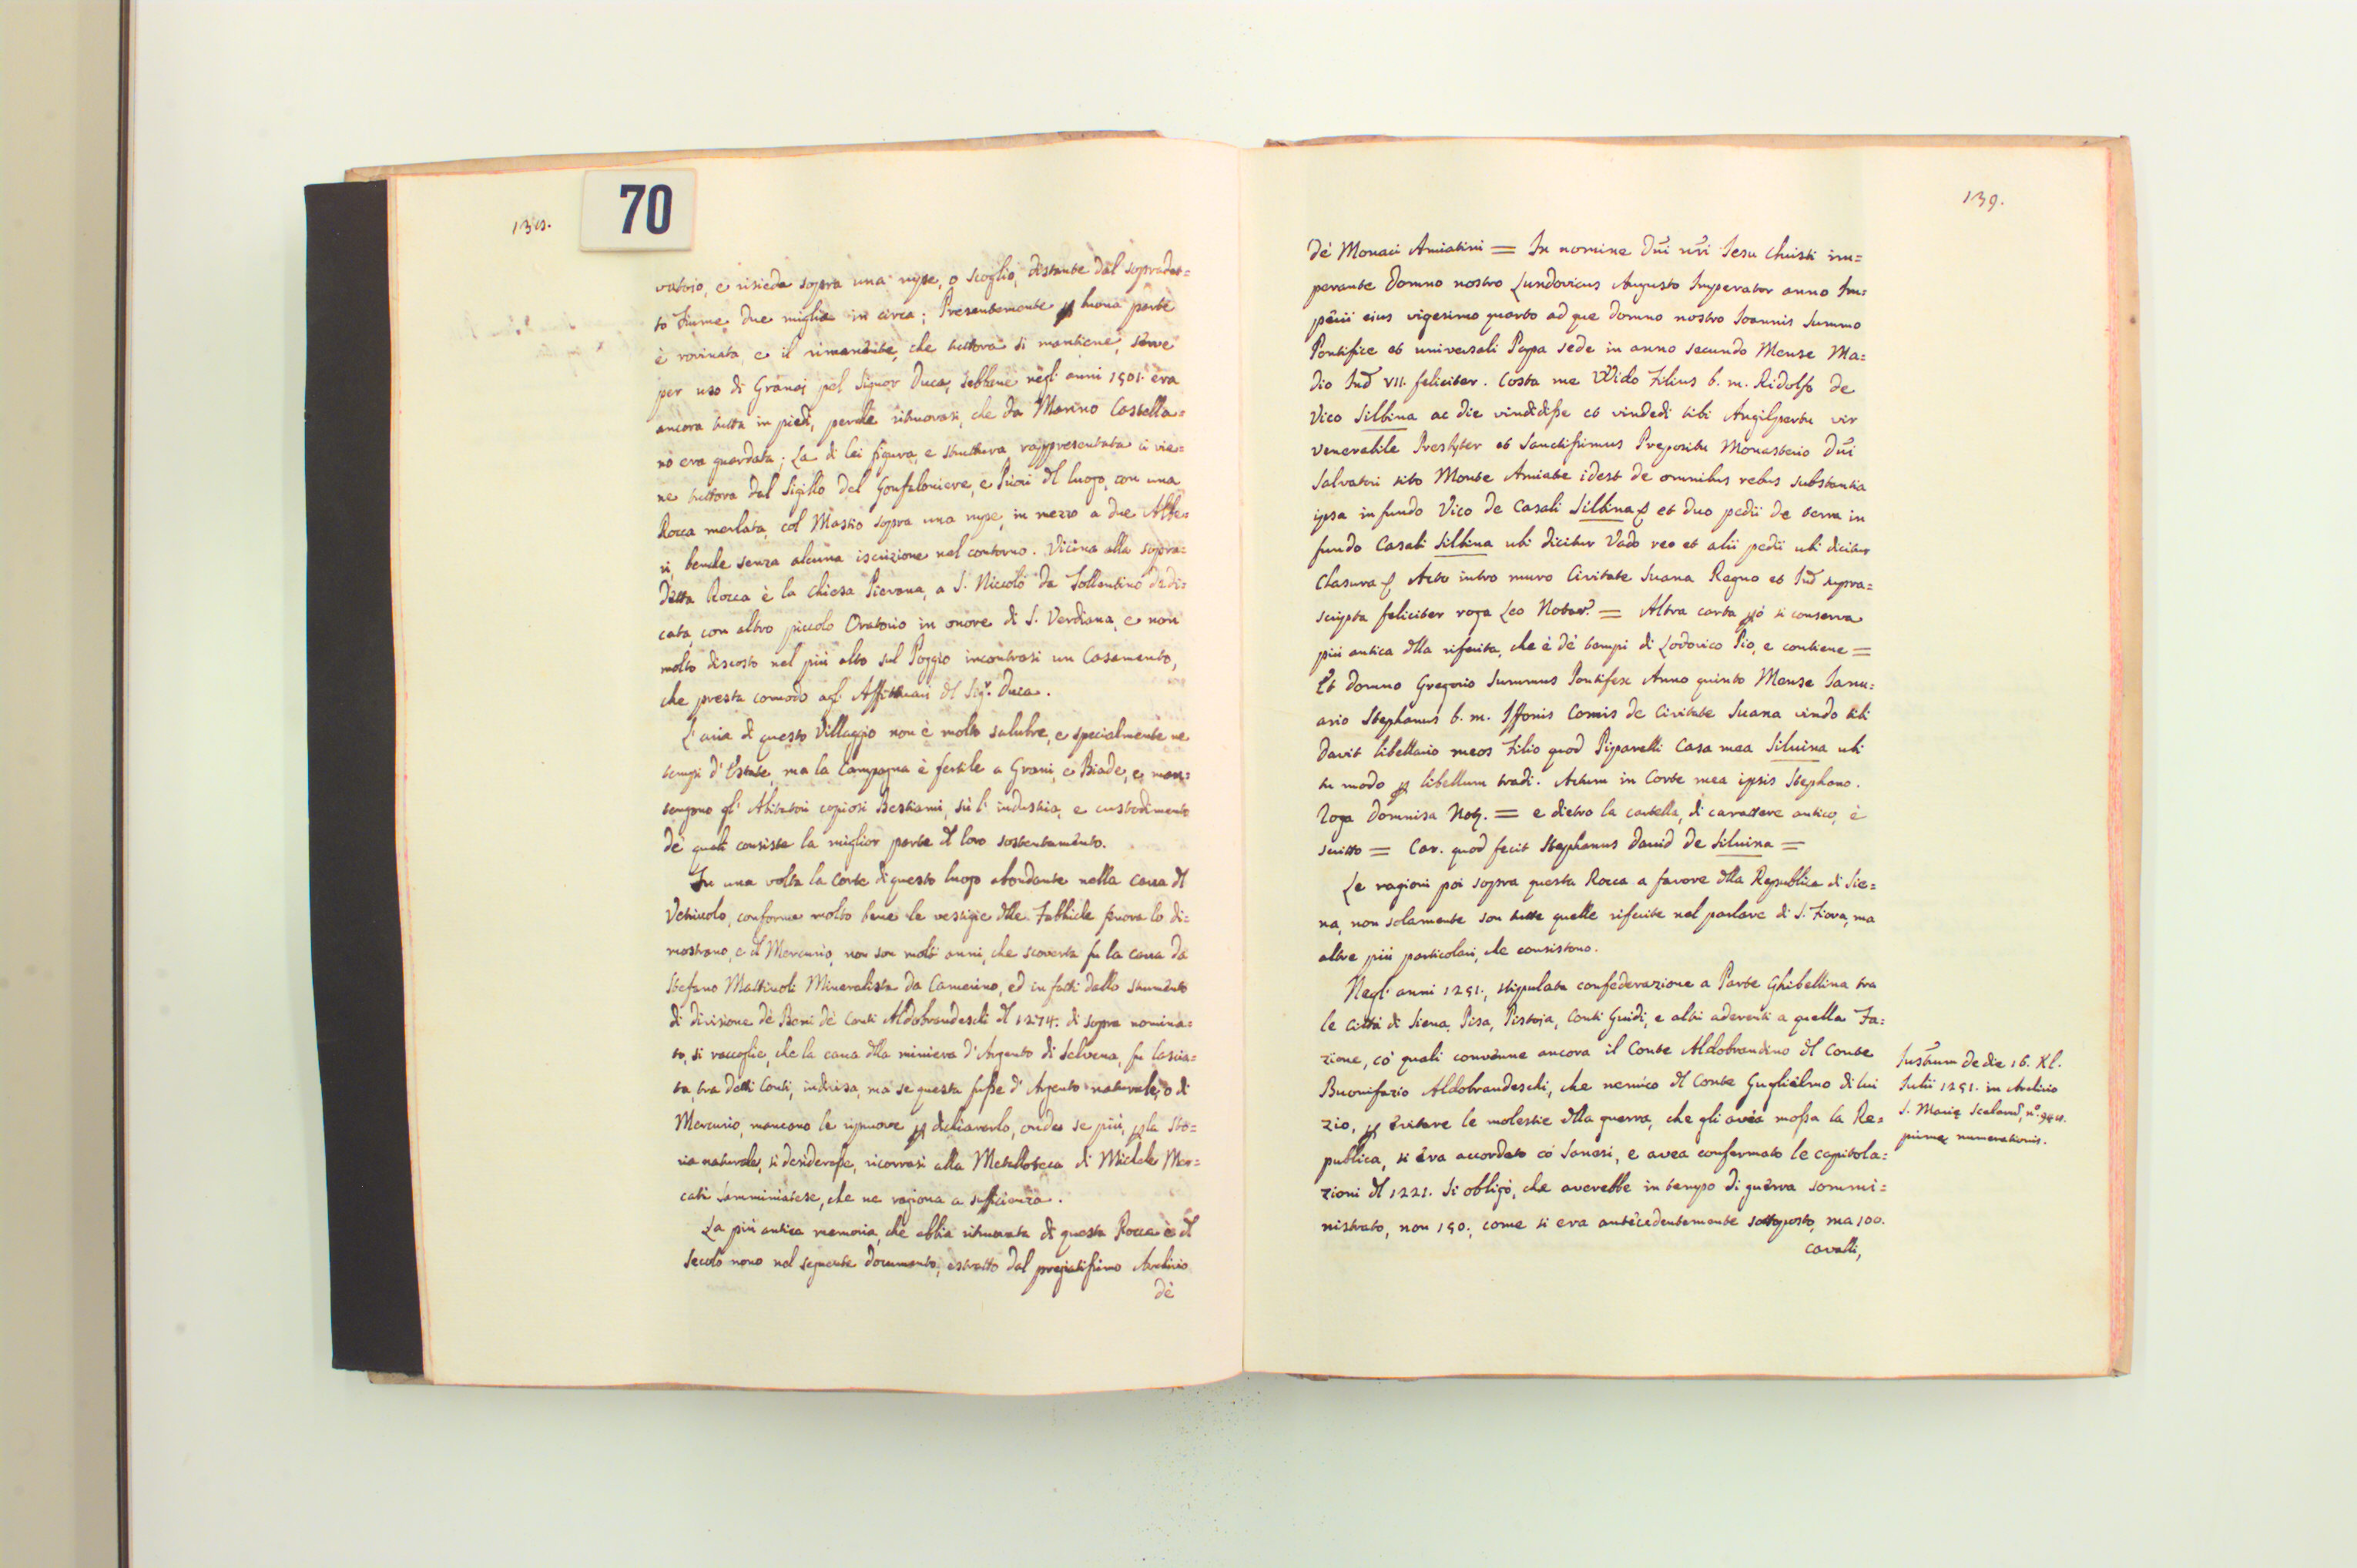 138.
70
vatojo, e risieda sopra una rupe, o scoglio, distante dal sopradet=
to Fiume due miglia in circa; Presentemente p buona parte
è rovinata, e il rimanente, che tuttora si mantiene, serve
per uso di Granaj pel Signor Duca, sebbene negl' anni 1501. era
ancora tutta in piedi, perche ritruovasi, che da Marino Castella=
no era guardata; La di lei figura, e struttura rappresentata ci vie=
ne tuttora dal Sigillo del Gonfaloniere, e Priori dl luogo, con una
Rocca merlata, col Mastio sopra una rupe, in mezzo a due Albe=
ri, benche senza alcuna iscrizione nel contorno. Vicina alla sopra=
detta Rocca è la Chiesa Pievana, a S. Niccolò da Tollentino dedi=
cata, con altro piccolo Oratorio in onore di S. Verdiana, e non
molto discosto nel più alto sul Poggio incontrasi un Casamento,
che presta comodo agl' Affittuari dl Sigr. Duca.
L'aria di questo Villaggio non è molto salubre, e specialmente ne
tempi d'Estate, ma la Campagna è fertile a Grani, e Biade, e man=
tengono gl' Abitatori copiosi Bestiami, sù l'industria, e custodimento
de' quali consiste la miglior parte dl loro sostentamento.
In una volta la Corte di questo luogo abondante nella cava dl
Vetriuolo, conforme molto bene le vestigie dlle Fabbriche fuora lo di=
mostrano, e il Mercurio, non son molti anni, che scoverta fu la cava da
Stefano Mattiuoli Mineralista da Camerino, ed in fatti dallo strumento
di divisione de' Beni de' Conti Aldobrandeschi dl 1274. di sopra nomina=
to, si raccoglie, che la cava dlla miniera d'Argento di Selvena, fu lascia=
ta, tra detti Conti, indivisa, ma se questa fusse d'Argento naturale, o di
Mercurio, mancono le ripruove p dichiararlo, onde se più, p la Sto=
ria naturale, si desiderasse, ricorrasi alla Metalloteca di Michele Mer=
cati Samminiatese, che ne ragiona a sufficienza.
La più antica memoria, che abbia ritruovata di questa Rocca è dl
Secolo nono nel seguente documento, estratto dal pregiatissimo Archivio
de'
139.
de' Monaci Amiatini = In nomine Dñi nr̃i Iesu Christi im=
perante Domno nostro Lundovicus Augusto Imperator anno Im=
perii eius vigesimo quarto ad que Domno nostro Ioannis Summo
Pontifice et universali Papa sede in anno secundo Mense Ma=
dio Ind VII. feliciter. Costa me VVido Filius b. m. Ridolfo de
Vico Silbina ac die vindidisse et vindedi tibi Angilpertu vir
venerabile Presbyter et Sanctissimus Prepositu Monasterio Dñi
Salvatori sito Monte Amiate idest de omnibus rebus substantia
ipsa in fundo Vico de Casali Silbina et duo pedii de terra in
fundo Casali Silbina ubi dicitur Vado reo et alii pedii ubi dicitur
Clasura Acto intro muro Civitate Suana Regno et Ind supra=
scripta feliciter roga Leo Notar. = Altra carta pò si conserva
più antica dlla riferita, che è de' tempi di Lodovico Pio, e contiene =
Et domno Gregorio Summus Pontifex Anno quinto Mense Ianu=
ario Stephanus b. m. Iffonis Comis de Civitate Suana vindo tibi
Davit libellario meos Filio quod Piparelli Casa mea Siluina ubi
tu modo p libellum tradi. Actum in Corte mea ipsis Stephano.
Roga Domnisa Notz. = e dietro la cartella, di carattere antico, è
scritto = Car. quod fecit Stephanus David de Siluina =
Le ragioni poi sopra questa Rocca a favore dlla Republica di Sie=
na, non solamente son tutte quelle riferite nel parlare di S. Fiora, ma
altre più particolari, che consistono.
Negl' anni 1251., stipulata confederazione a Parte Ghibellina tra
le Città di Siena, Pisa, Pistoja, Conti Guidi, e altri aderenti a quella Fa=
zione, co' quali convenne ancora il Conte Aldobrandino dl Conte
Buonifazio Aldobrandeschi, che nemico dl Conte Guglielmo di lui
zio, p evitare le molestie dlla guerra, che gli avea mossa la Re=
publica, si era accordato co' Sanesi, e avea confermato le capitola=
zioni dl 1221. Si obligò, che averebbe in tempo di guerra sommi=
nistrato, non 150., come si era antecedentemente sottoposto, ma 100.
cavalli,
Instrum de die 16. Kl.
Iulii 1251. in Archivio
S. Marię Scalarum, n.°
primę numerationis.